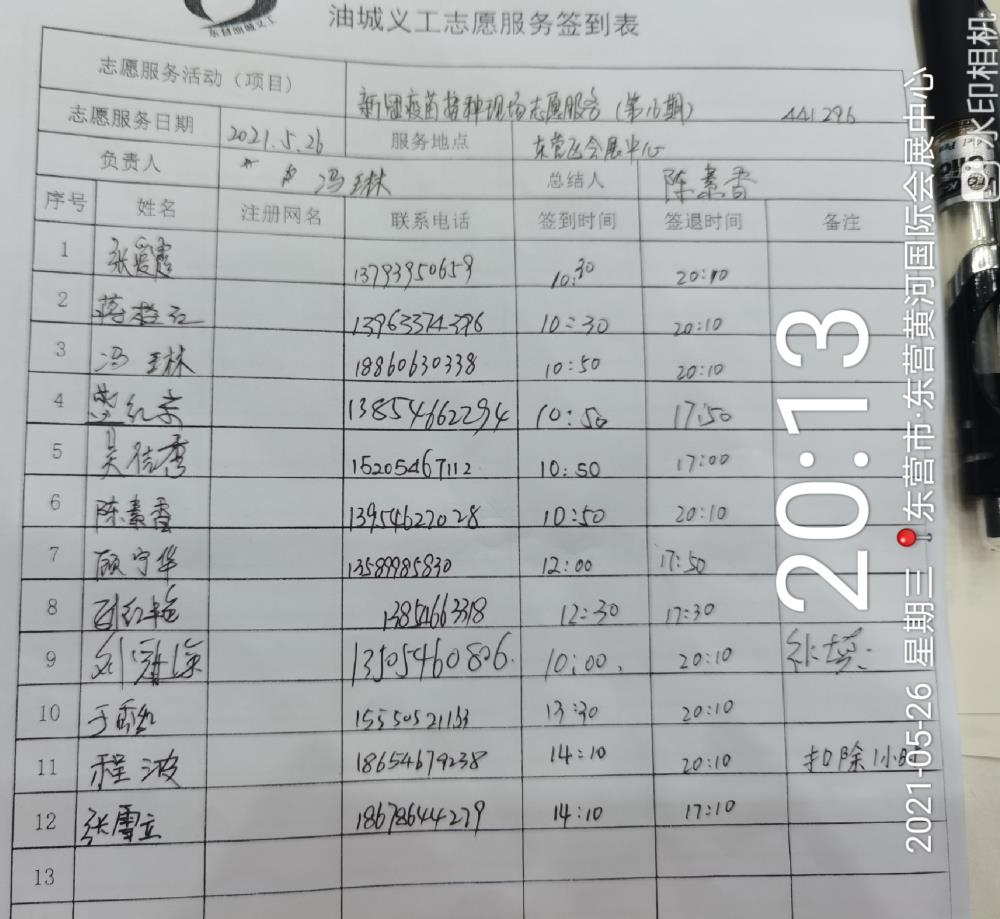 东营油城义工
油城义工志愿服务签到表
志愿服务活动（项目） 新冠疫苗接种现场志愿服务（第16期） 441296
志愿服务日期 2021.5.26 服务地点 东营区会展中心
负责人 冯玉林 总结人 陈素香
序号 姓名 注册网名 联系电话 签到时间 签退时间 备注
1 张爱霞 13793950659 10:30 20:10
2 蒋桂红 13963374396 10:30 20:10
3 冯玉林 18860630338 10:50 20:10
4 红 13854662294 10:50 17:50
5 吴秀 15205467112 10:50 17:00
6 陈素香 13954622028 10:50 20:10
7 顾宁华 13589985830 12:00 17:50
8 红艳 13854663318 12:30 17:30
9 刘 13505460806. 10:00. 20:10
10 于 15550521153 13:30 20:10
11 程波 18654679238 14:10 20:10 扣除1小时
12 张雪立 18678644279 14:10 17:10
13
20:13
2021-05-26 星期三 东营市·东营黄河国际会展中心
水印相机